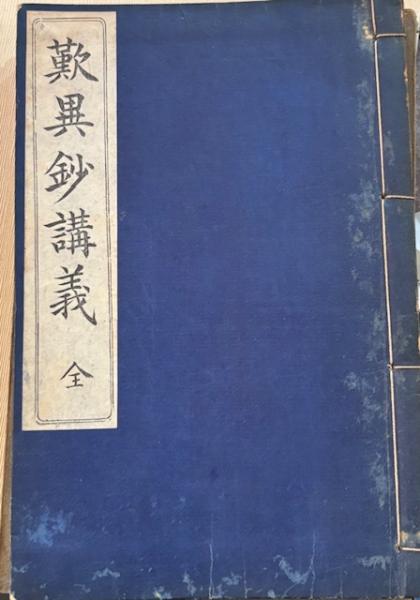 歎異鈔講義 全